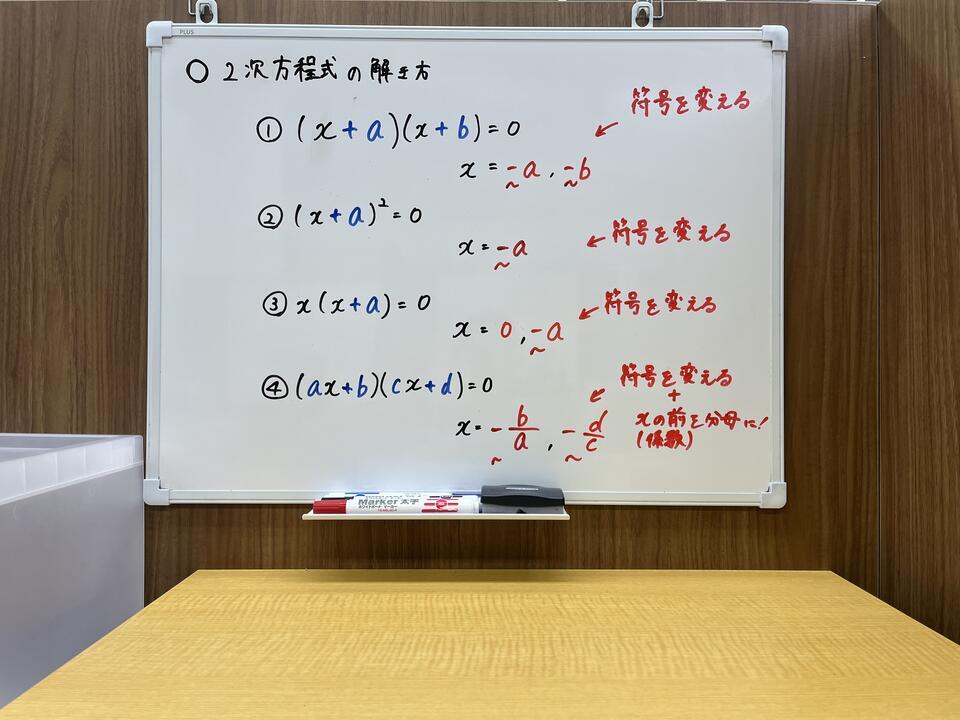 PLUS
○ 2次方程式の解き方
① (x+a)(x+b)=0
符号を変える
x=-a, -b
② (x+a)²=0
x=-a
符号を変える
③ x(x+a)=0
符号を変える
x=0, -a
④ (ax+b)(cx+d)=0
符号を変える
+
x=-b/a, -d/c
xの前を分母に!
(係数)
Marker 太字
ホワイトボードマーカー